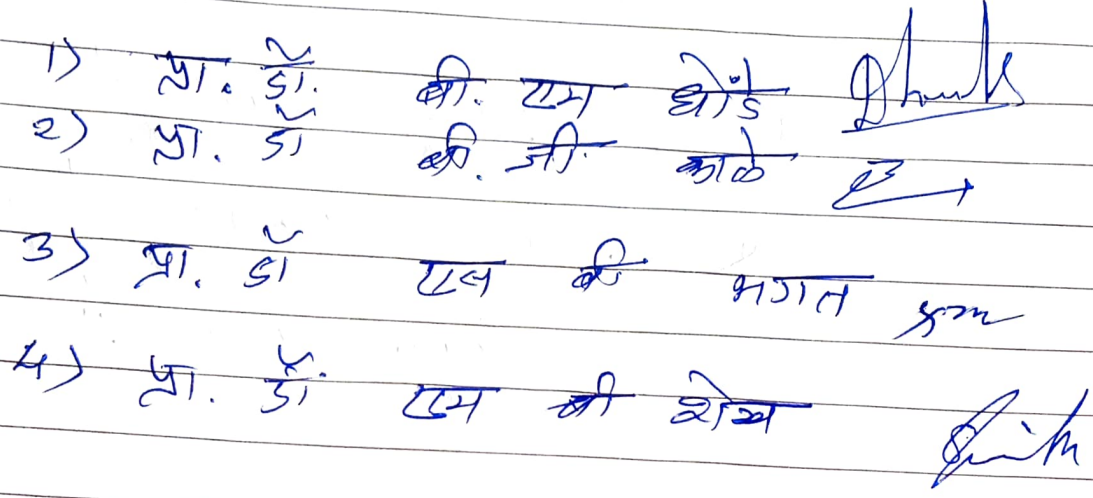 1) प्रा. डॉ. बी. एम घोंडे
2) प्रा. डॉ बी. जी. काळे
3) प्रा. डॉ एल बी भगत
4) प्रा. डॉ. एम बी शेख